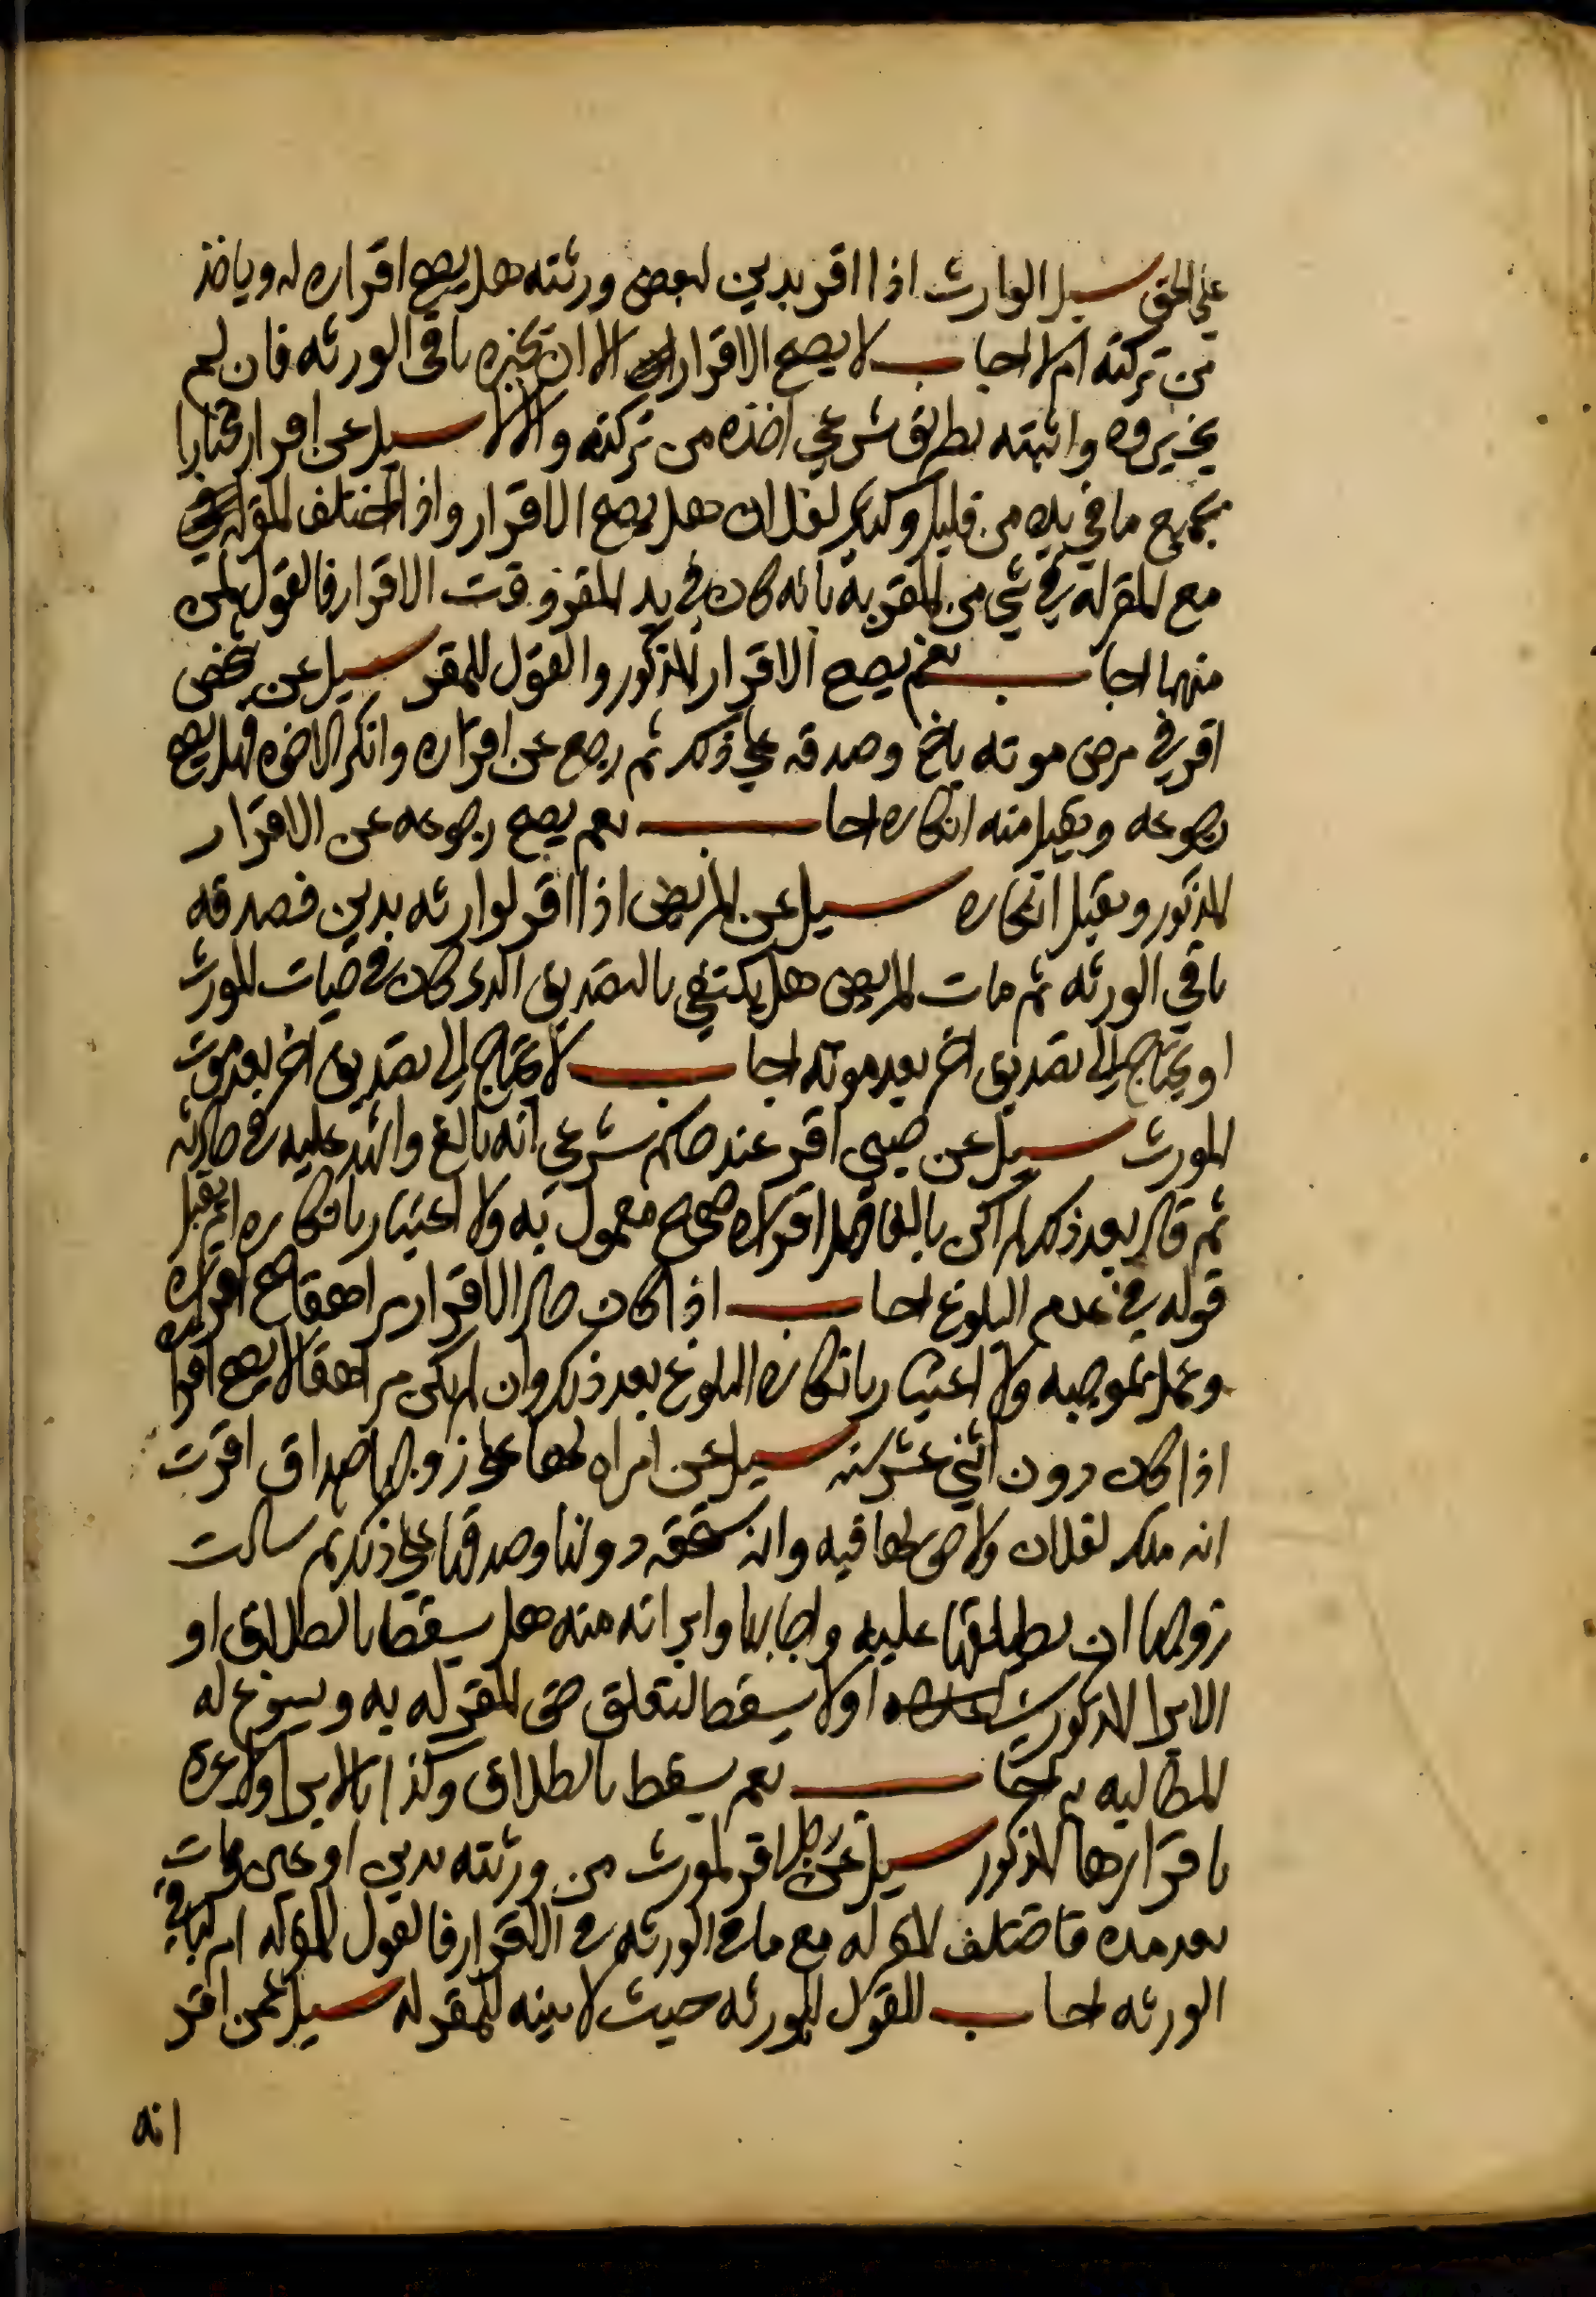 على الحق سيل الوارث اذا اقر بدين لبعض ورثته هل يصح اقراره له وياخذ
من تركته ام لا اجاب لا يصح الاقرار الا ان يجيزه باقي الورثه فان لم
يجيزوه واثبته بطريق شرعي اخذه من تركته والا لا سيل عن اقرار مختارا
بجميع ما في يده من قليل وكثير لفلان هل يصح الاقرار واذا اختلف المقر
مع المقر له في شي من المقر به بانه كان في يد المقر وقت الاقرار فالقول لمن
منهما اجاب نعم يصح الاقرار المذكور والقول للمقر سيل عن شخص
اقر في مرض موته باخ وصدقه على ذلك ثم رجع عن اقراره وانكر الاخوه فهل يصح
رجوعه ويقبل منه انكاره اجاب نعم يصح رجوعه عن الاقرار
المذكور ويقبل انكاره سيل عن المريض اذا اقر لوارثه بدين فصدقه
باقي الورثه ثم مات المريض هل يكتفي بالتصديق الذي كان في حيات المورث
او يحتاج الى تصديق اخر بعد موته اجاب لا يحتاج الى تصديق اخر بعد موت
المورث سيل عن صبي اقر عند حاكم شرعي انه بالغ واشهد عليه في حادثه
ثم قال بعد ذلك لم اكن بالغا فهل اقراره صحيح معمول به ولا اعتبار بانكاره ام يقبل
قوله في عدم البلوغ اجاب اذا كان حال الاقرار مراهقا صح اقراره
وعمل بموجبه ولا اعتبار بانكاره البلوغ بعد ذلك وان لم يكن مراهقا لا يصح اقراره
اذا كان دون اثني عشر سنه سيل عن امراه لها على زوجها صداق اقرت
انه ملك لفلان ولا حق لها فيه وانه يستحقه دونها وصدقها على ذلك ثم سالت
زوجها ان يطلقها عليه واجابها وابراته منه هل يسقط بالطلاق او
الابرا المذكور او لا يسقط لتعلق حق المقر له به ويسوغ له
المطالبه به اجاب نعم يسقط بالطلاق وكذا بالابرا ولا عبرة
باقرارها المذكور سيل عن رجل اقر لمورث من ورثته بدين او عين ومات
بعد مده فاختلف المقر له مع باقي الورثه في الاقرار فالقول للمقر له ام لباقي
الورثه اجاب القول للورثه حيث لا بينه للمقر له سيل عمن اقر
انه